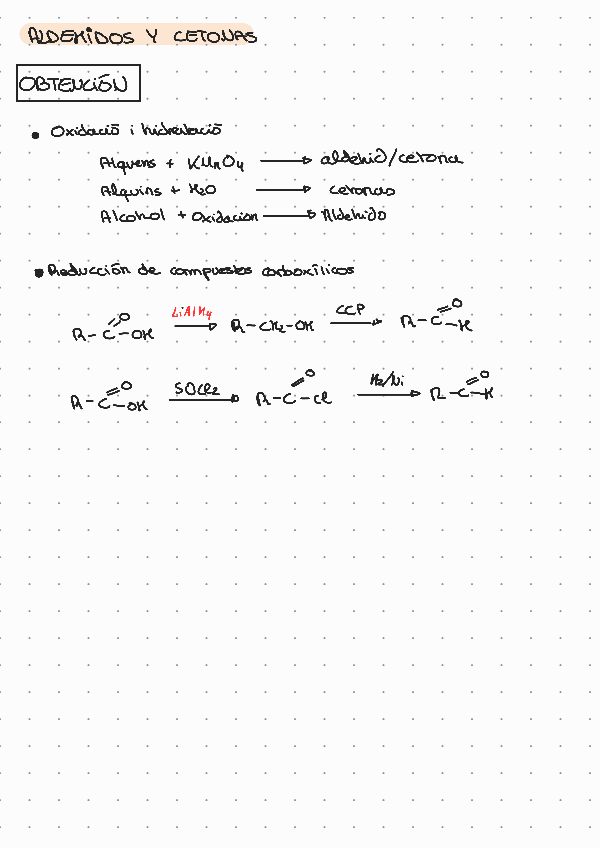 ALDEHIDOS Y CETONAS
OBTENCIÓN
• Oxidació i hidratació
Alquens + KMnO4 → aldehid/cetona
Alquins + H2O → cetonas
Alcohol + Oxidacion → Aldehido
• Reducción de compuestos carboxílicos
R-C(=O)-OH LiAlH4 → R-CH2-OH CCP → R-C(=O)-H
R-C(=O)-OH SOCl2 → R-C(=O)-Cl H2/Ni → R-C(=O)-H